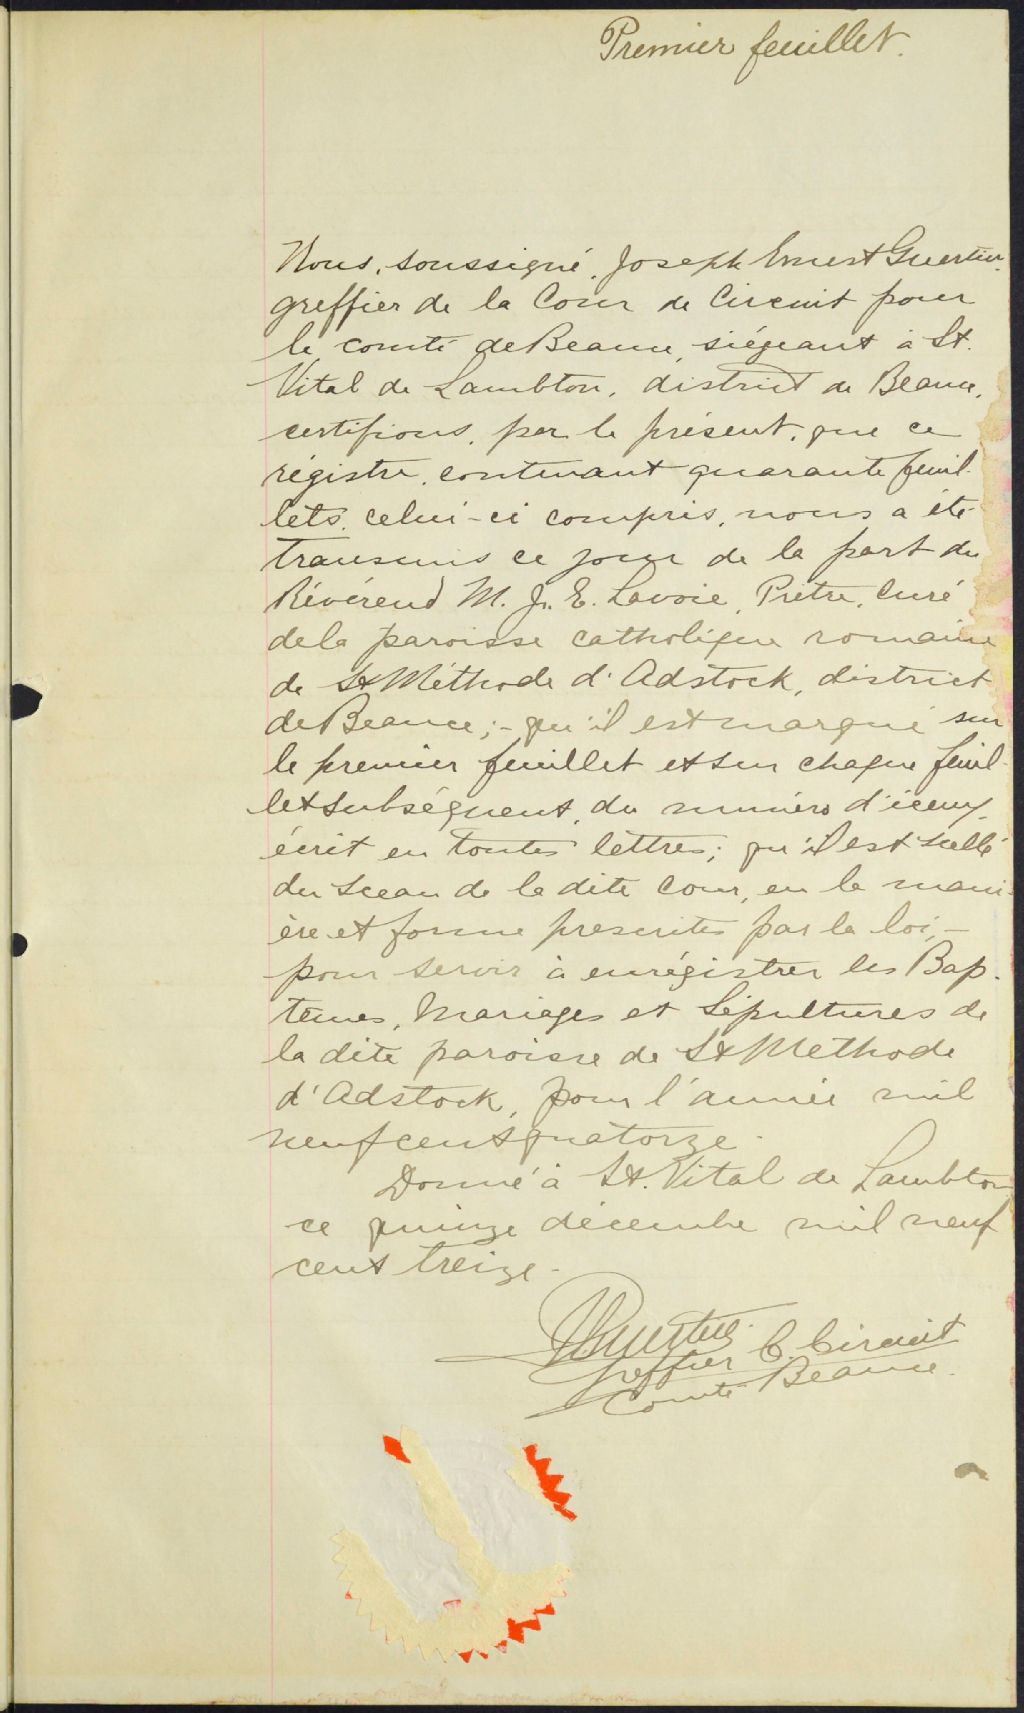 Premier feuillet.
Nous, soussigné, Joseph Ernest Guertin,
greffier de la Cour de Circuit pour
le comté de Beauce, siégeant à St.
Vital de Lambton, district de Beauce,
certifions, par le présent, que ce
régistre, contenant quarante feuil-
lets, celui-ci compris, nous a été
transmis ce jour de la part du
Révérend M. J. E. Lavoie, Prêtre, Curé
de la paroisse catholique romaine
de St Méthode d'Adstock, district
de Beauce ;- qu'il est marqué sur
le premier feuillet et sur chaque feuil-
let subséquent, du numéro d'iceux,
écrit en toutes lettres ; qu'il est scellé
du sceau de la dite Cour, en la mani-
ère et forme prescrites par la loi,-
pour servir à enrégistrer les Bap-
têmes, Mariages et Sépultures de
la dite paroisse de St Méthode
d'Adstock, pour l'année mil
neuf cent quatorze.
Donné à St. Vital de Lambton
ce quinze décembre mil neuf
cent treize.
Guertin
Greffier C. Circuit
Comté Beauce.